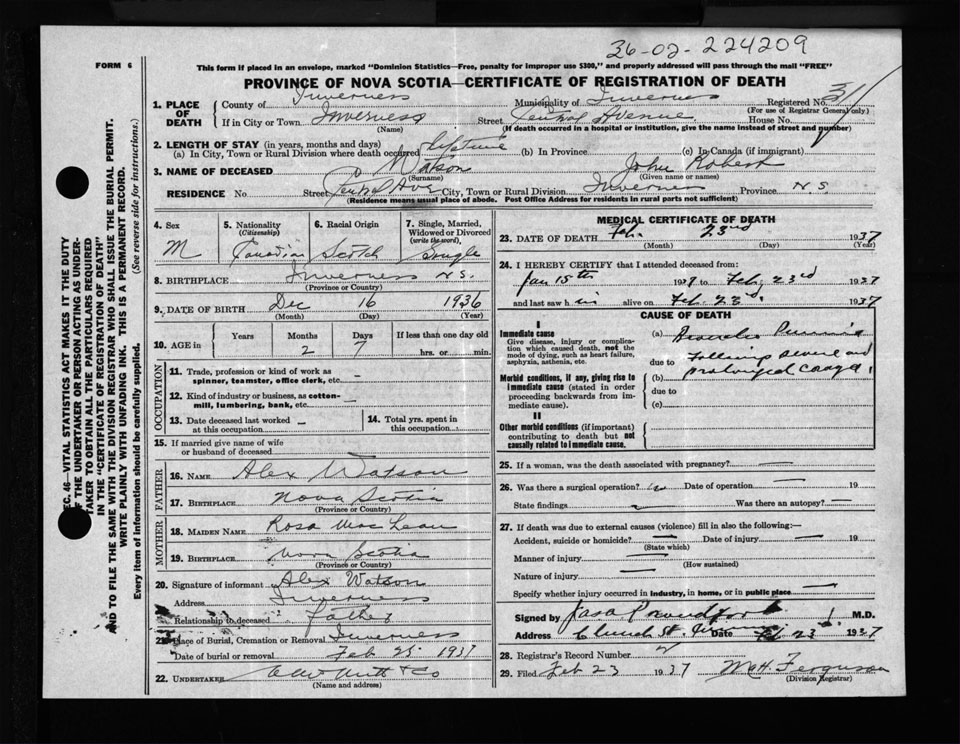 36-02-224209
FORM 6
This form if placed in an envelope, marked "Dominion Statistics—Free, penalty for improper use $300," and properly addressed will pass through the mail "FREE"
PROVINCE OF NOVA SCOTIA—CERTIFICATE OF REGISTRATION OF DEATH
1. PLACE OF DEATH County of Inverness Municipality of Inverness Registered No. 311
(For use of Registrar General only.)
If in City or Town Inverness Street Central Avenue House No.
(Name) (If death occurred in a hospital or institution, give the name instead of street and number)
2. LENGTH OF STAY (in years, months and days)
(a) In City, Town or Rural Division where death occurred lifetime (b) In Province (c) In Canada (if immigrant)
3. NAME OF DECEASED Watson John Robert
(Surname) (Given name or names)
RESIDENCE No Street Central Ave City, Town or Rural Division Inverness Province N S
(Residence means usual place of abode. Post Office Address for residents in rural parts not sufficient)
4. Sex M
5. Nationality (Citizenship) Canadian
6. Racial Origin Scotch
7. Single, Married, Widowed or Divorced (write the word) Single
8. BIRTHPLACE Inverness N.S.
(Province or Country)
9. DATE OF BIRTH Dec 16 1936
(Month) (Day) (Year)
10. AGE in Years Months 2 Days 7 If less than one day old
hrs. or min.
OCCUPATION
11. Trade, profession or kind of work as spinner, teamster, office clerk, etc. —
12. Kind of industry or business, as cotton-mill, lumbering, bank, etc. —
13. Date deceased last worked at this occupation —
14. Total yrs. spent in this occupation
15. If married give name of wife or husband of deceased
FATHER
16. NAME Alex Watson
17. BIRTHPLACE Nova Scotia
(Province or Country)
MOTHER
18. MAIDEN NAME Rosa MacLean
19. BIRTHPLACE Nova Scotia
(Province or Country)
20. Signature of informant Alex Watson
Address Inverness
Relationship to deceased Father
21. Place of Burial, Cremation or Removal Inverness
Date of burial or removal Feb 25 1937
22. UNDERTAKER & Co
(Name and address)
MEDICAL CERTIFICATE OF DEATH
23. DATE OF DEATH Feb. 23rd 1937
(Month) (Day) (Year)
24. I HEREBY CERTIFY that I attended deceased from:
Jan 15th 1937 to Feb. 23rd 1937
and last saw h im alive on Feb. 23rd. 1937
CAUSE OF DEATH
I
Immediate cause
Give disease, injury or complication which caused death, not the mode of dying, such as heart failure, asphyxia, asthenia, etc.
(a) Broncho
due to following severe and
Morbid conditions, if any, giving rise to immediate cause (stated in order proceeding backwards from immediate cause).
(b) prolonged
due to
(c)
II
Other morbid conditions (if important) contributing to death but not causally related to immediate cause.
25. If a woman, was the death associated with pregnancy? —
26. Was there a surgical operation? Date of operation — 19
State findings Was there an autopsy? —
27. If death was due to external causes (violence) fill in also the following:—
Accident, suicide or homicide? — Date of injury — 19
(State which)
Manner of injury —
(How sustained)
Nature of injury —
Specify whether injury occurred in industry, in home, or in public place —
Signed by M.D.
Address Church St. Date Feb 23 1937
28. Registrar's Record Number
29. Filed Feb 23 1937 Ferguson
(Division Registrar)
SEC. 46—VITAL STATISTICS ACT MAKES IT THE DUTY
OF THE UNDERTAKER OR PERSON ACTING AS UNDERTAKER TO OBTAIN ALL THE PARTICULARS REQUIRED
IN THE "CERTIFICATE OF REGISTRATION OF DEATH"
AND TO FILE THE SAME WITH THE DIVISION REGISTRAR WHO SHALL ISSUE THE BURIAL PERMIT.
WRITE PLAINLY WITH UNFADING INK. THIS IS A PERMANENT RECORD.
Every item of information should be carefully supplied. (See reverse side for instructions.)